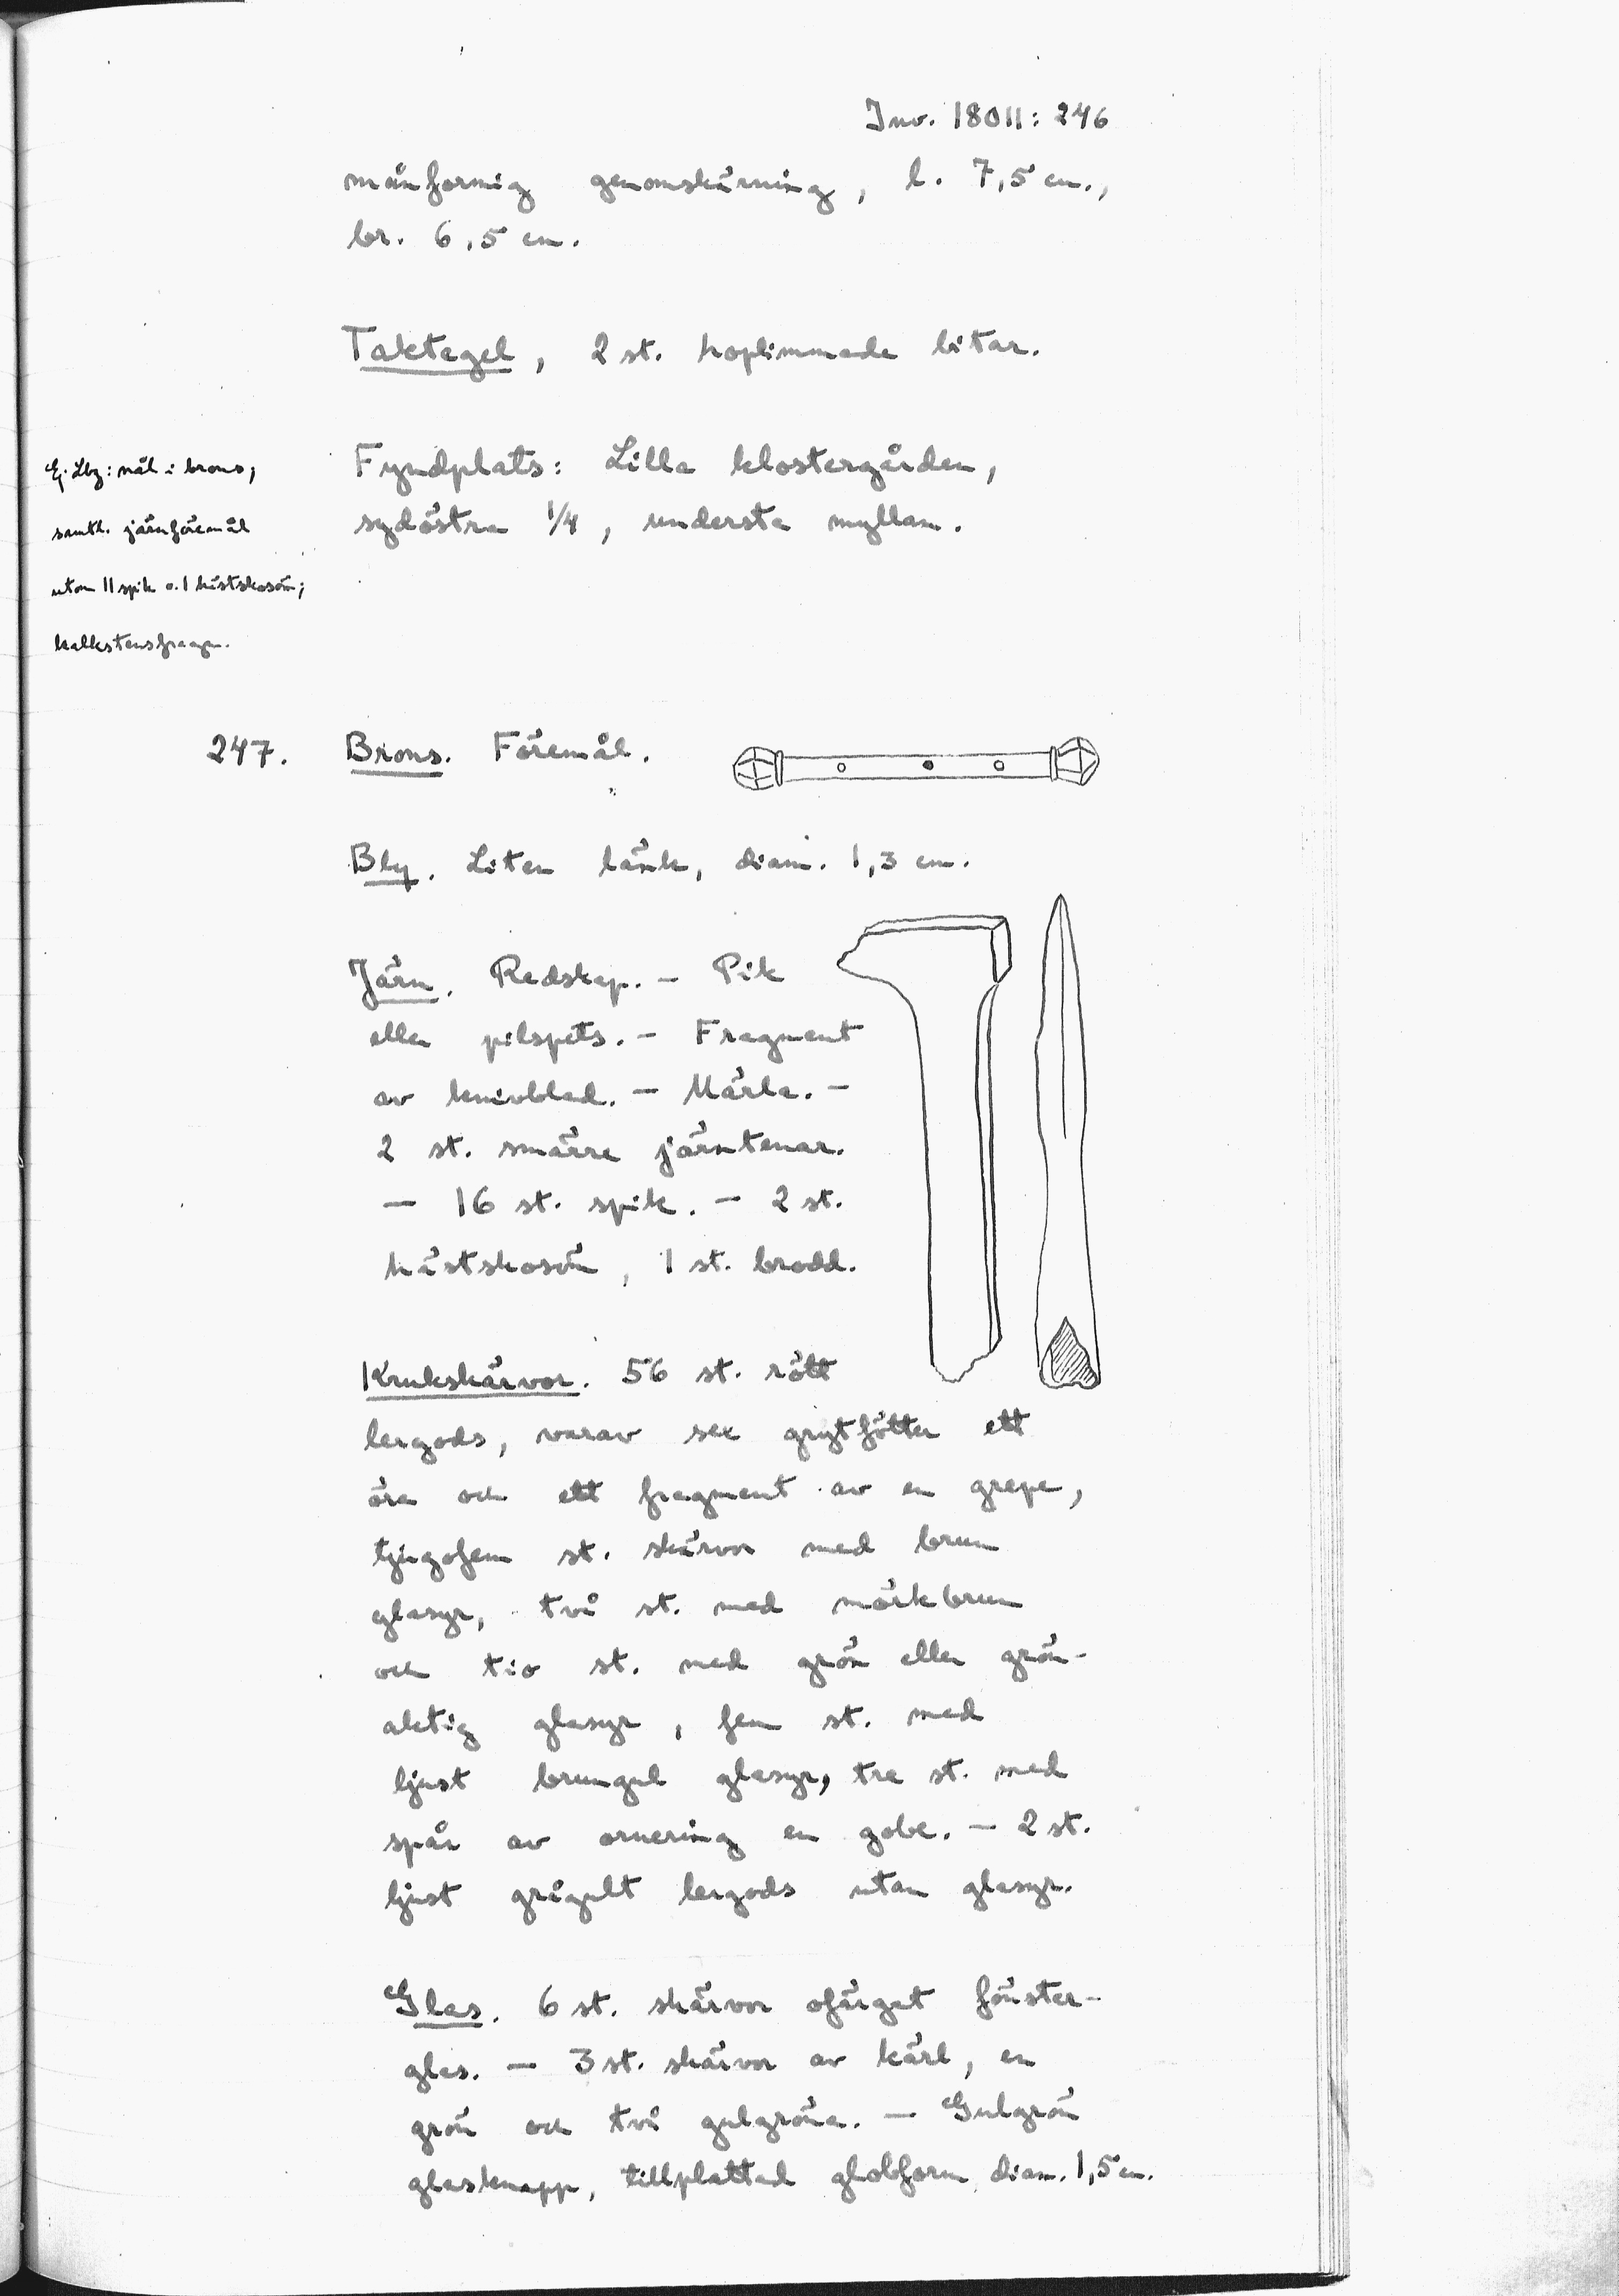 Inv. 18011: 246
månformig genomskärning, l. 7,5 cm.,
br. 6,5 cm.
Taktegel, 2 st. hoplimmade bitar.
Fyndplats: Lilla klostergården,
sydöstra 1/4, understa myllan.
Ej Lbg: nål i brons;
samtl. järnföremål
utom 11 spik o. 1 hästskosöm;
kalkstensfragm.
247. Brons. Föremål.
Bly. Liten länk, diam. 1,3 cm.
Järn. Redskap. - Pik
eller pilspets. - Fragment
av knivblad. - Märla. -
2 st. smärre järntenar.
- 16 st. spik. - 2 st.
hästskosöm, 1 st. brodd.
Krukskärvor. 56 st. rött
lergods, varav sex grytfötter ett
öra och ett fragment av en grepe,
tjugofem st. skärvor med brun
glasyr, två st. med mörkbrun
och tio st. med grön eller grön-
aktig glasyr, fem st. med
ljust brungul glasyr, tre st. med
spår av ornering en gobe. - 2 st.
ljust grågult lergods utan glasyr.
Glas. 6 st. skärvor ofärgat fönster-
glas. - 3 st. skärvor av kärl, en
grön och två gulgröna. - Gulgrön
glasknapp, tillplattad globform, diam. 1,5 cm.